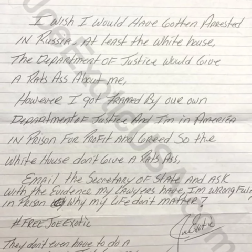 I wish I would Have Gotten Arrested
in Russia. At least the White house,
The Department of Justice would Give
A Rats Ass About me,
However I got Framed By our own
Department of Justice And I'm in America
in Prison For Profit and Greed So the
White House dont Give A Rats Ass,
Email the Secretary of State and ASK
with the Evidence my Lawyers have, I'm wrongfully
in Prison Why my Life don't matter?
#FREEJOEEXOTIC
They dont even have to do a